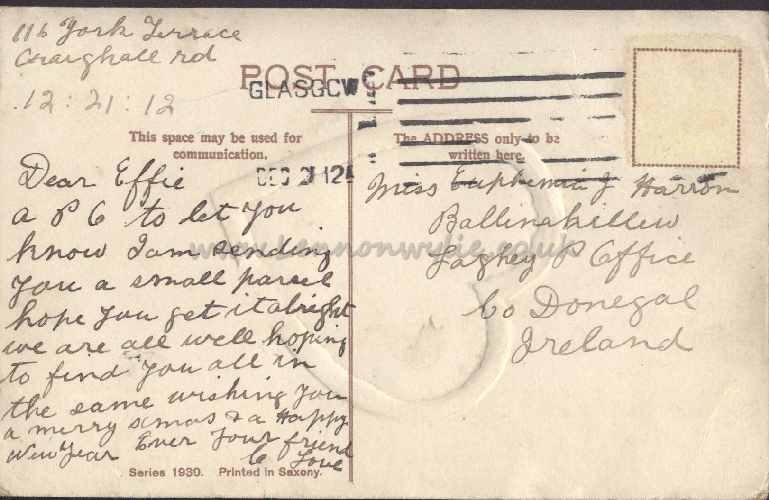 116 York Terrace
Craighall rd
12 : 21 : 12
POST CARD
GLASGOW
DEC 21 12
This space may be used for
communication.
The ADDRESS only to be
written here.
Dear Effie
a P C to let you
know I am sending
you a small parcel
hope you get it alright
we are all well hoping
to find you all in
the same wishing you
a merry xmas & a Happy
New Year Ever your friend
C Love
Miss Euphemia J Harron
Ballinakillew
Laghey P Office
Co Donegal
Ireland
Series 1930. Printed in Saxony.